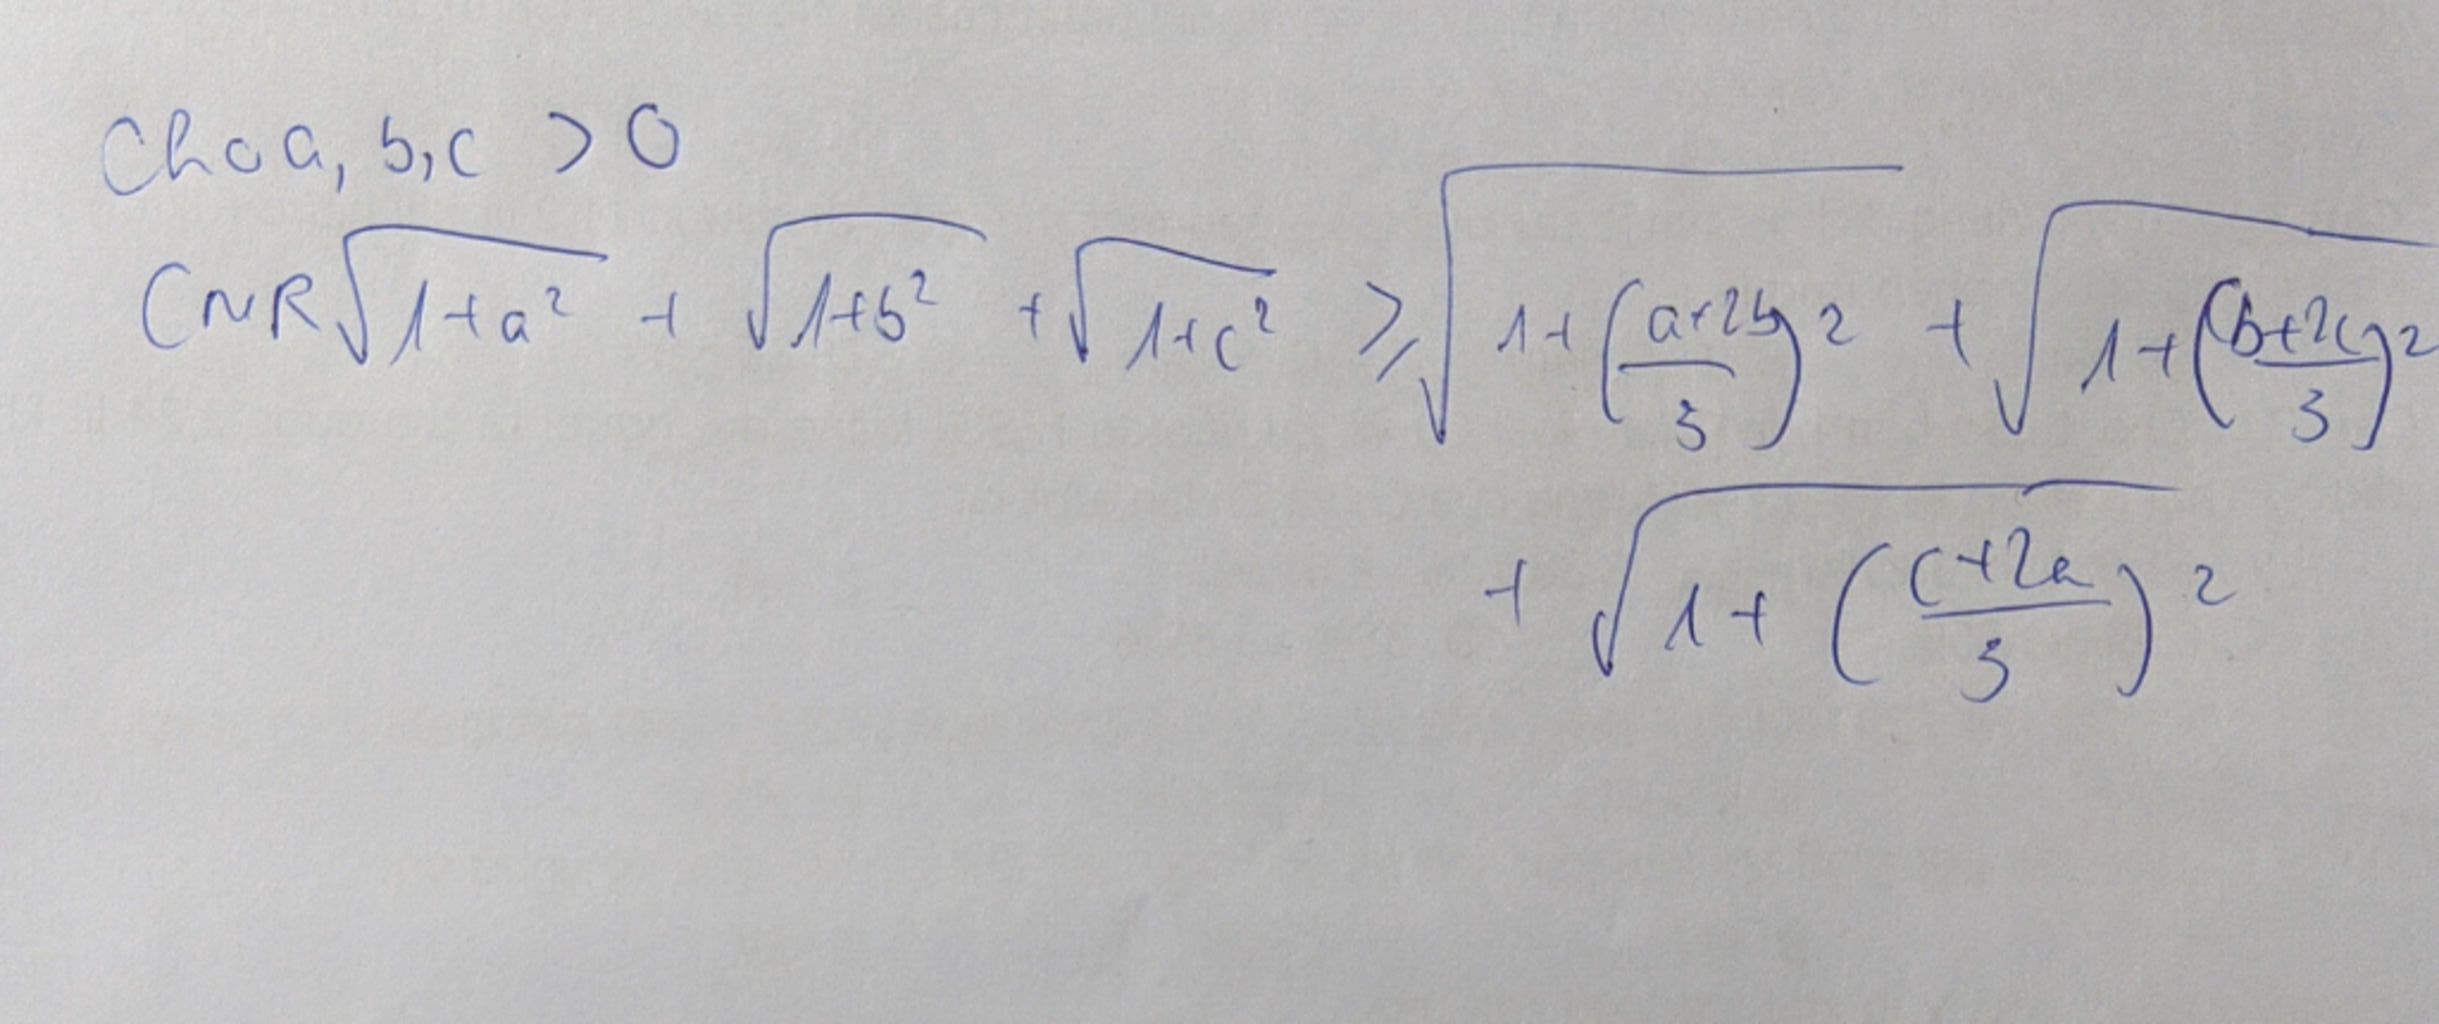 Cho a, b, c > 0
CNR √(1+a²) + √(1+b²) + √(1+c²) ≥ √(1+((a+2b)/3)²) + √(1+((b+2c)/3)²)
+ √(1+((c+2a)/3)²)